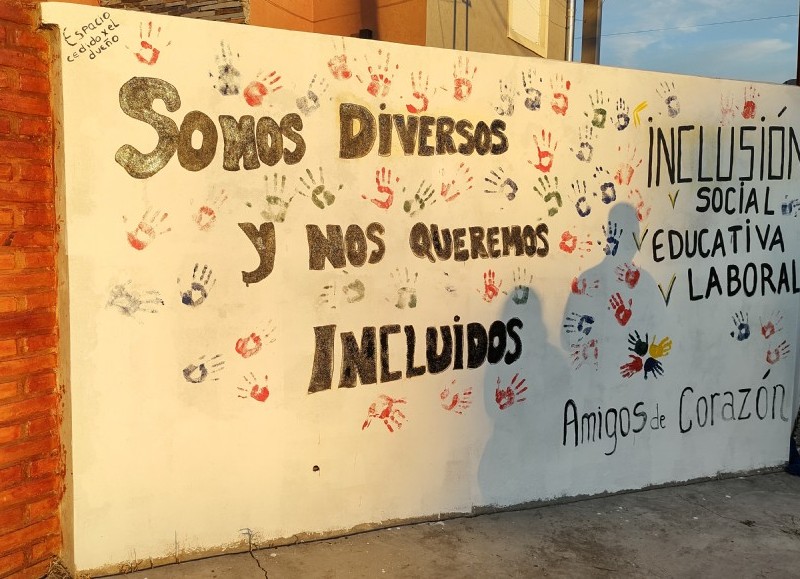 Espacio
cedido x el
dueño
Somos Diversos
y nos queremos
incluidos
inclusión
social
educativa
laboral
Amigos de Corazón